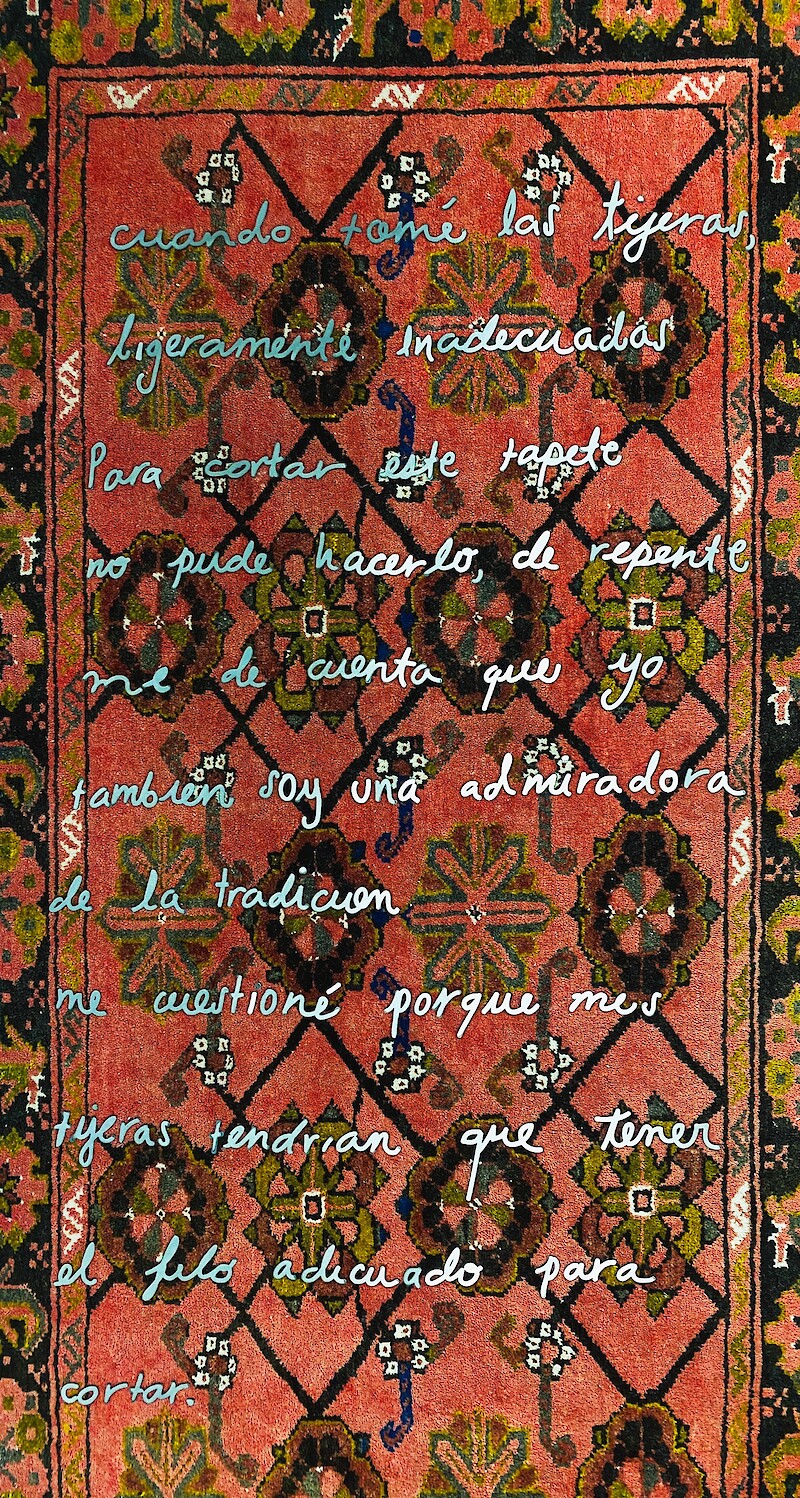 cuando tomé las tijeras,
ligeramente inadecuadas
Para cortar este tapete
no pude hacerlo, de repente
me de cuenta que yo
tambien soy una admiradora
de la tradicion
me cuestioné porque mis
tijeras tendrian que tener
el filo adecuado para
cortar.